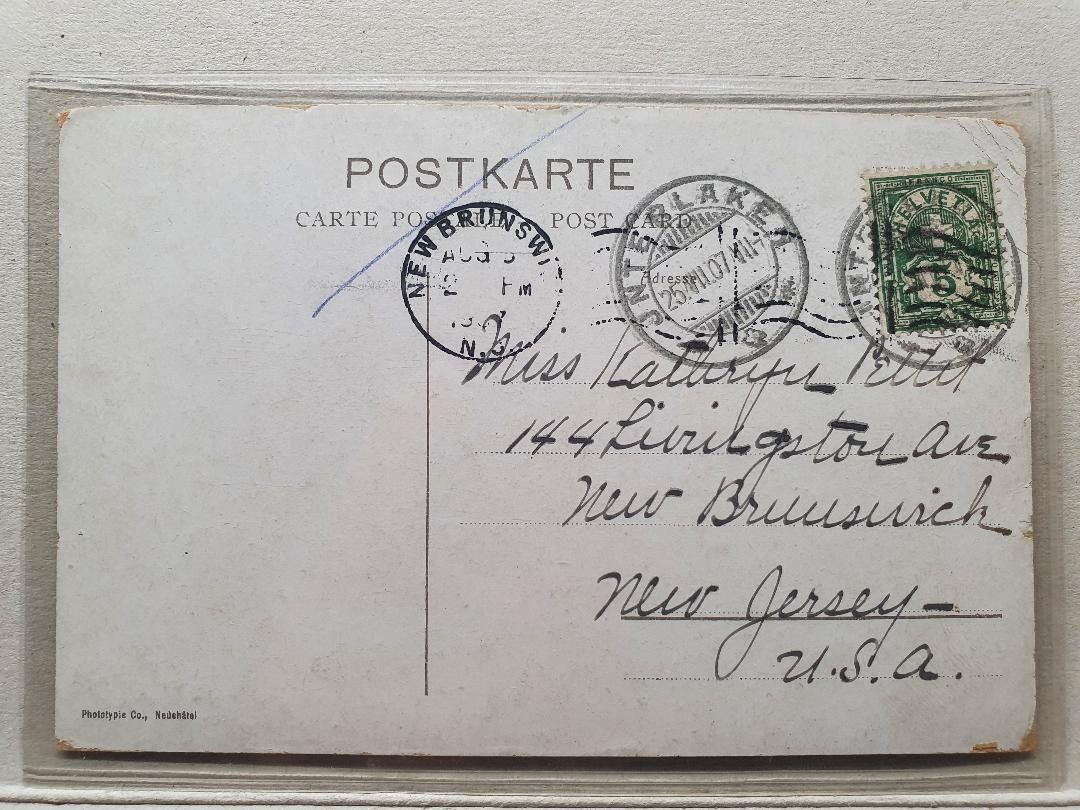 POSTKARTE
CARTE POSTALE POST CARD
NEW BRUNSWI
AUG
2 PM
N.J.
INTERLAKEN
25.VII.07
Adresse
HELVETIA
5
Miss Kathryn Pettit
144 Livingston Ave
New Brunswick
New Jersey—
U.S.A.
Phototypie Co., Neuchâtel